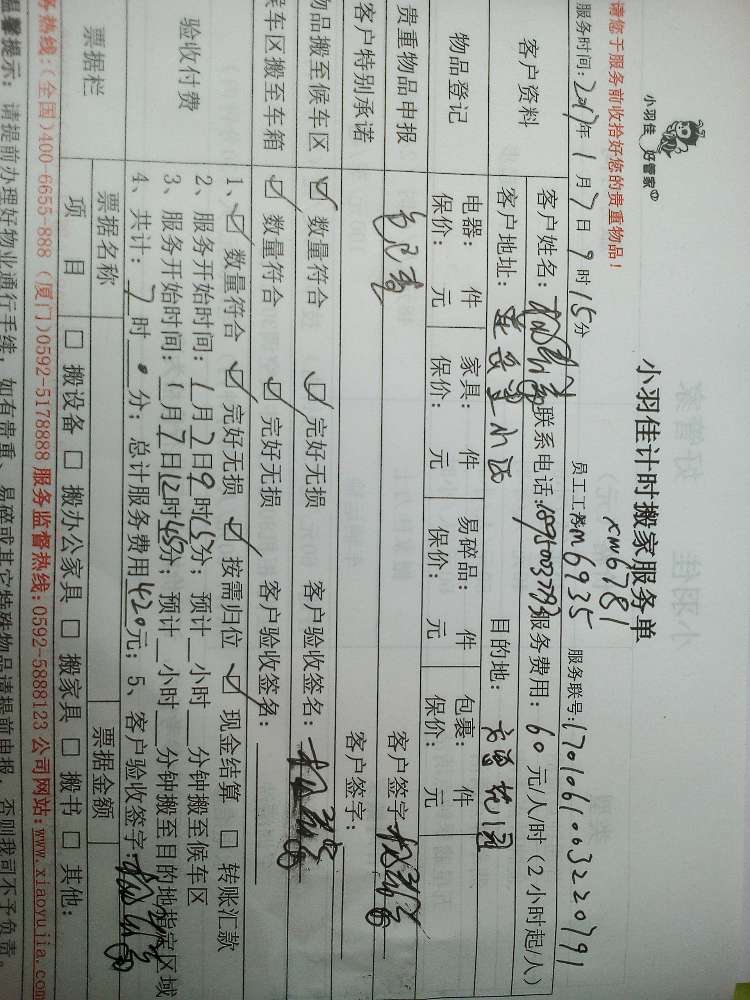 小羽佳 好管家
小羽佳计时搬家服务单
xm6781
请您于服务前收拾好您的贵重物品！
服务时间：2017年1月7日9时15分 员工工号 m6935 服务联号：
客户资料 客户姓名： 联系电话： 服务费用：60元/人/时（2小时起/人）
客户地址： 目的地： 花园
物品登记 电器： 件 家具： 件 易碎品： 件 包裹： 件
保价： 元 保价： 元 保价： 元 保价： 元
贵重物品申报 客户签字
客户特别承诺 客户签字：
物品搬至候车区 ☑ 数量符合 ☑ 完好无损 客户验收签名：
候车区搬至车箱 ☑ 数量符合 ☑ 完好无损 客户验收签名：
验收付费 1、☑ 数量符合 ☑ 完好无损 ☑ 按需归位 ☑ 现金结算 □ 转账汇款
2、服务开始时间：1月7日9时15分；预计__小时__分钟搬至候车区
3、服务开始时间：1月7日12时45分；预计__小时__分钟搬至目的地指定区域
4、共计：7时 分；总计服务费用420元；5、客户验收签字：
票据栏 票据名称 票据金额
项 目 □ 搬设备 □ 搬办公家具 □ 搬家具 □ 搬书 □ 其他：
务热线：（全国）400-6655-888（厦门）0592-5178888 服务监督热线：0592-5888123 公司网站：www.xiaoyujia.com
温馨提示：请提前办理好物业通行手续，如有贵重、易碎或其它特殊物品请提前申报，否则我司不予负责。